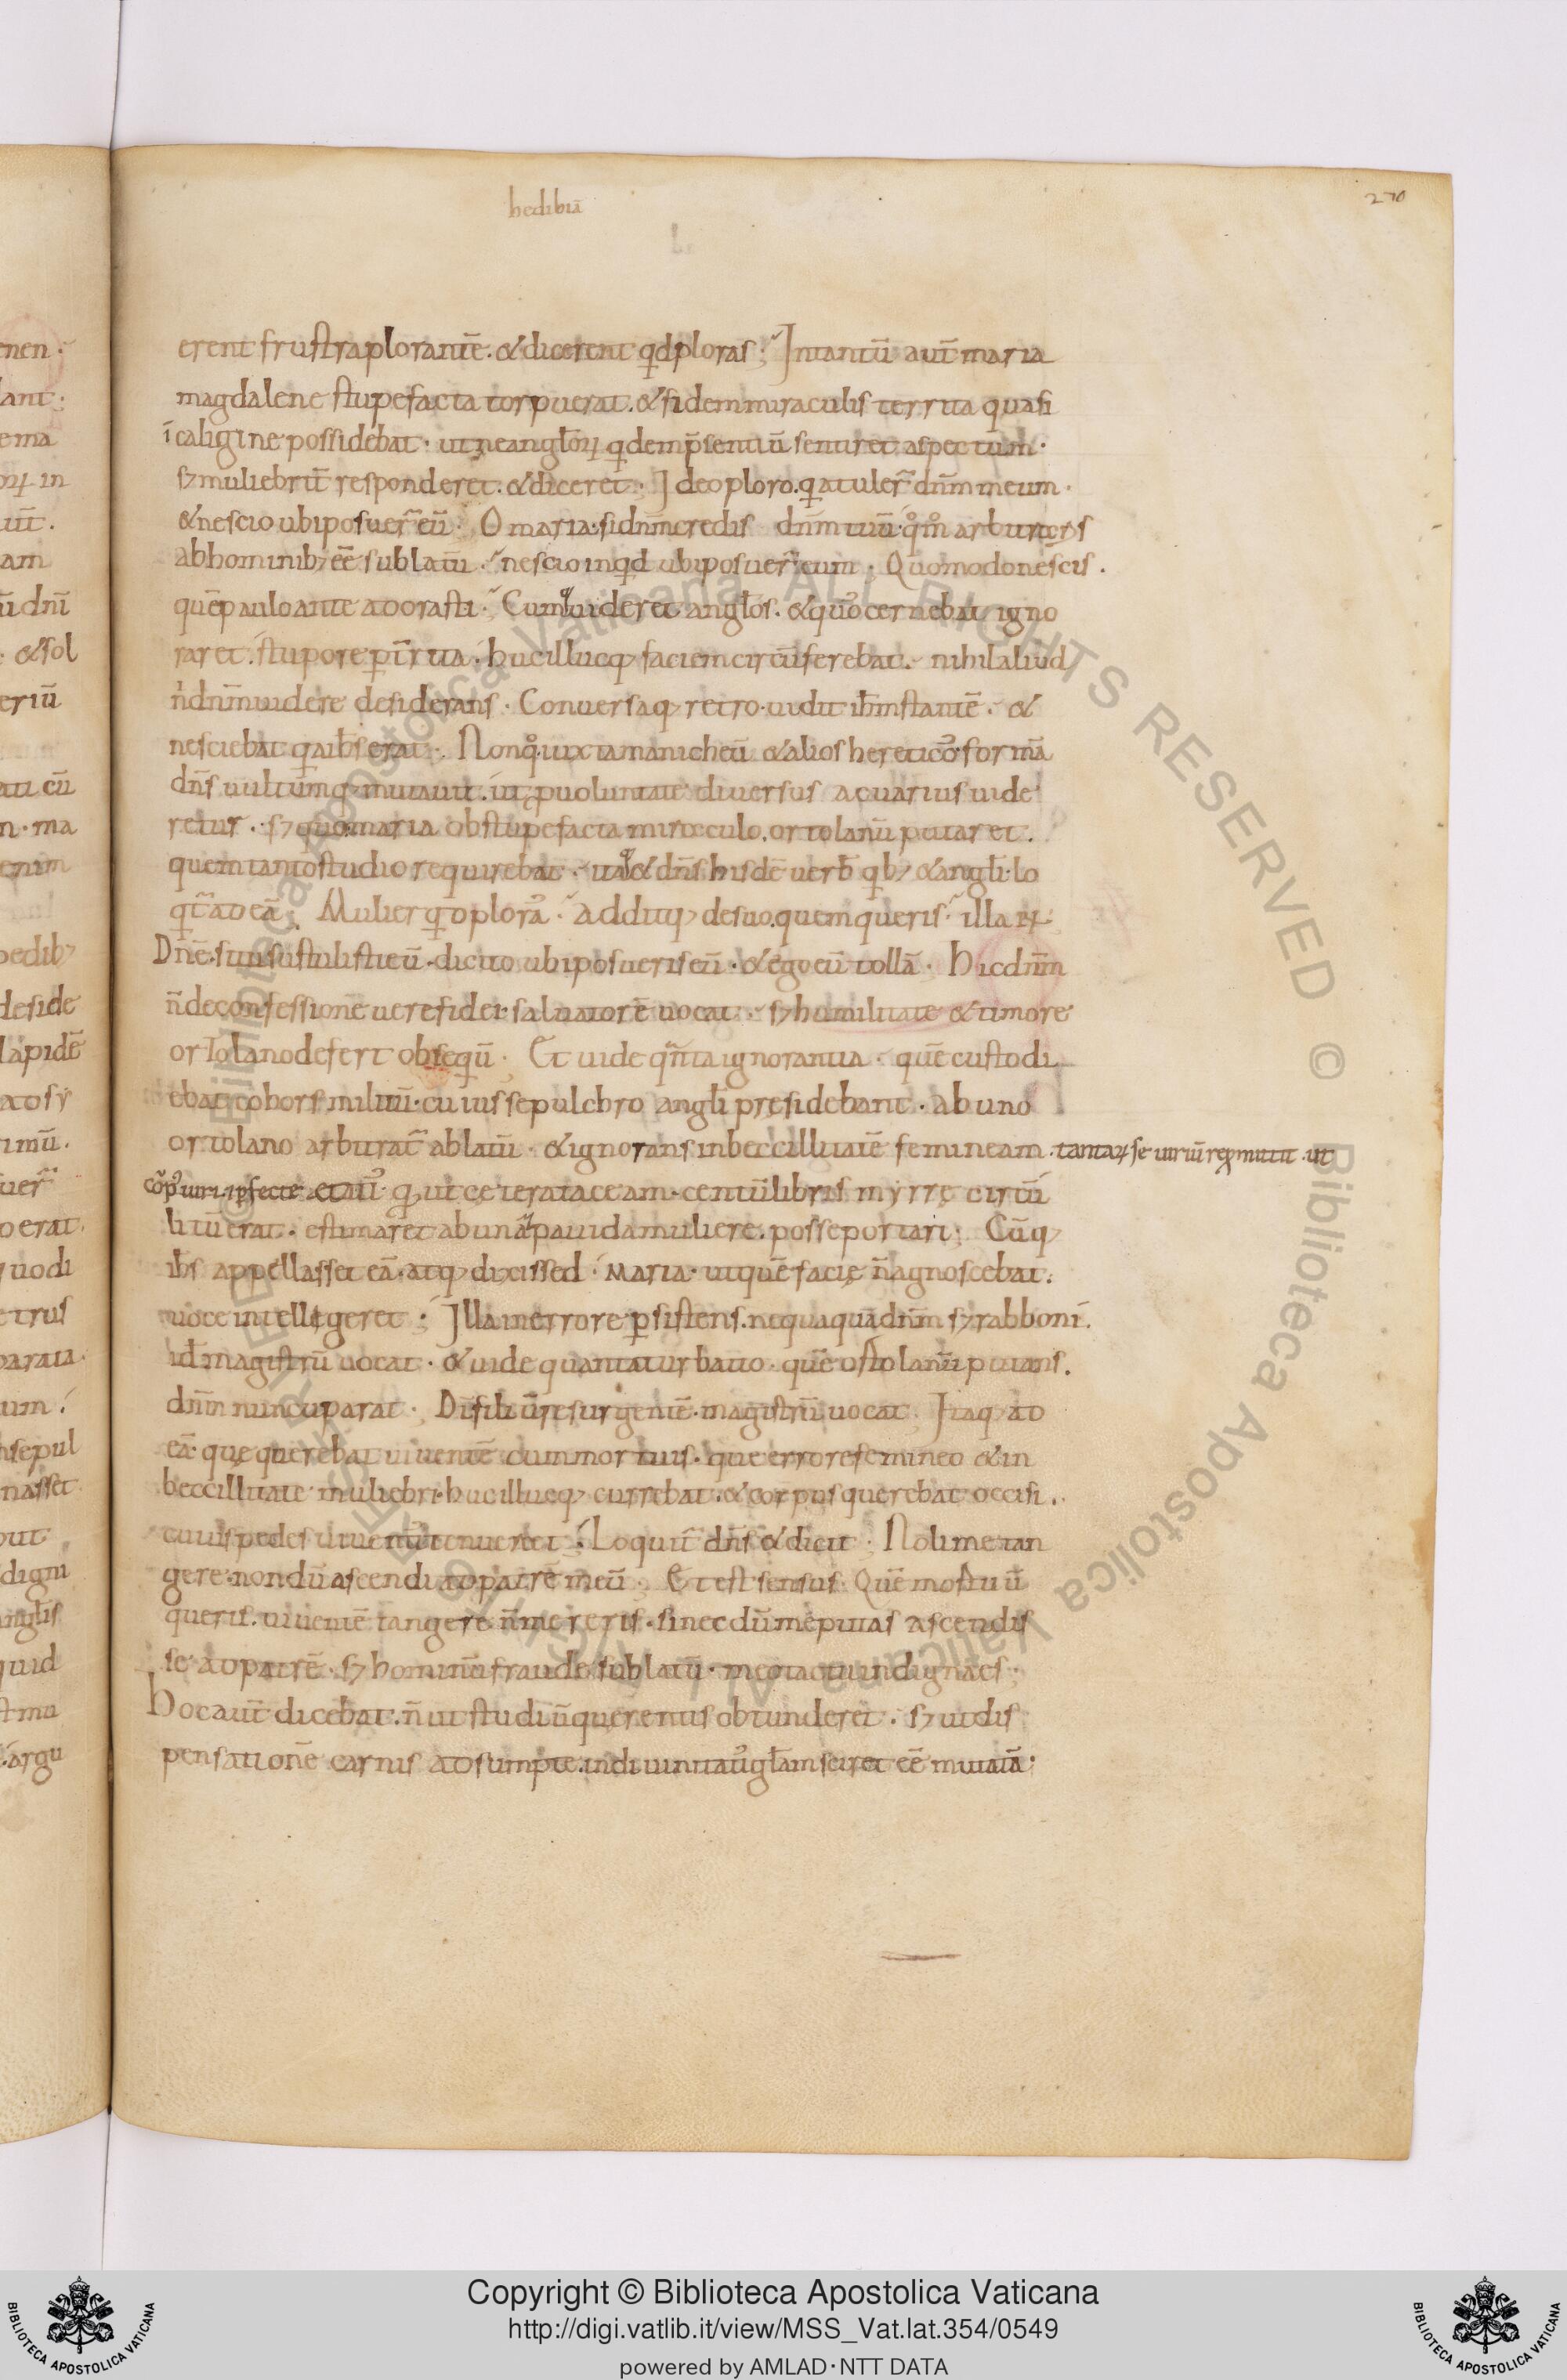 hedibiā
270
erent frustra plorantē. & dicerent qd ploras; Intantū aut̄ maria
magdalene stupefacta torpuerat. & fidem miraculis territa quasi
ī caligine possidebat. ut ne anglōꝝ qdem p̄sentiū sentiret aspectum.
sꝫ muliebrit̄ responderet. & diceret. Ideo ploro. q̄a tuler̄ dn̄m meum.
& nescio ubi posuer̄ eū. O maria. si dn̄m credis dn̄m tuū. qm̊ arbitreris
ab hominibꝫ eē sublatū. nescio inqd ubi posuer̄ eum. Quomodo nescis.
quē paulo ante adorasti. Cumq; uideret anglos. & quos cernebat igno
raret. stupore p̄t̄rita. huc illucqꝫ faciem circūferebat. nihil aliud
n̓ dn̄m uidere desiderans. Conuersaqꝫ retro. uidit ih̄m stantē. &
nesciebat q̄a ih̄s erat. Non qo̊ iuxta manicheū & alios hereticos formā
dn̄s uultūmqꝫ mutauit. ut p uoluntate diuersus ac uarius uide
retur. sꝫ quo maria obstupefacta miraculo. ortolanū putaret.
quem tanto studio requirebat. itaqꝫ & dn̄s hisdē uerb̄ qbꝫ & angli. lo
qt̄ ad eā. Mulier qd plorās. additqꝫ de suo. quem queris. illa ꝶ
Dn̄e. si tu sustulisti eū. dicito ubi posueris eū. & ego eū tollā. Hic dn̄m
n̄ de confessione uere fidei saluatorē uocat. sꝫ humilitate & timore
ortolano defert obsequiū. Et uide qn̄ta ignorantia. quē custodi
ebat cohors militū. cuius sepulchro angli presidebant. ab uno
ortolano arbitrat̄ ablatū. & ignorans inbeccillitatē femineam. tantaꝝ se uiriū repmittit. ut
cōrp̓ uiri. ꝑfecte etat̓. qd ut cetera taceam. centū libris myrrę circū
litū erat. estimaret ab una & pauida muliere. posse portari; Cūqꝫ
ih̄s appellasset eā. atqꝫ dixissed. Maria. ut quē facie n̄ agnoscebat.
uoce intellegeret. Illa in errore ꝑsistens. nequaquā dn̄m sꝫ rabboni.
id̄ magistrū uocat. & uide quanta turbatio. quē ostolanū putans.
dn̄m nuncuparat. Di filiū resurgentē. magistrū uocat. Itaqꝫ ad
eā. que querebat uiuentē cum mortuis. que errore femineo & in
beccillitate muliebri. huc illucqꝫ currebat. & corpus querebat occisi.
cuius pedes uiuentis tenueret. Loquit̄ dn̄s & dicit. Noli me tan
gere. nondū ascendi ad patrē meū. Et est sensus. Quē mortuū
queris. uiuentē tangere n̄ mereris. si necdū me putas ascendis
se ad patrē. sꝫ hominū fraude sublatū. meo tactu indigna es.
Hoc aut̄ dicebat. n̄ ut studiū querentis obtunderet. sꝫ ut dis
pensationē carnis adsumpte. in diuinitatis glam sciret eē mutatā.
Copyright © Biblioteca Apostolica Vaticana
http://digi.vatlib.it/view/MSS_Vat.lat.354/0549
powered by AMLAD·NTT DATA